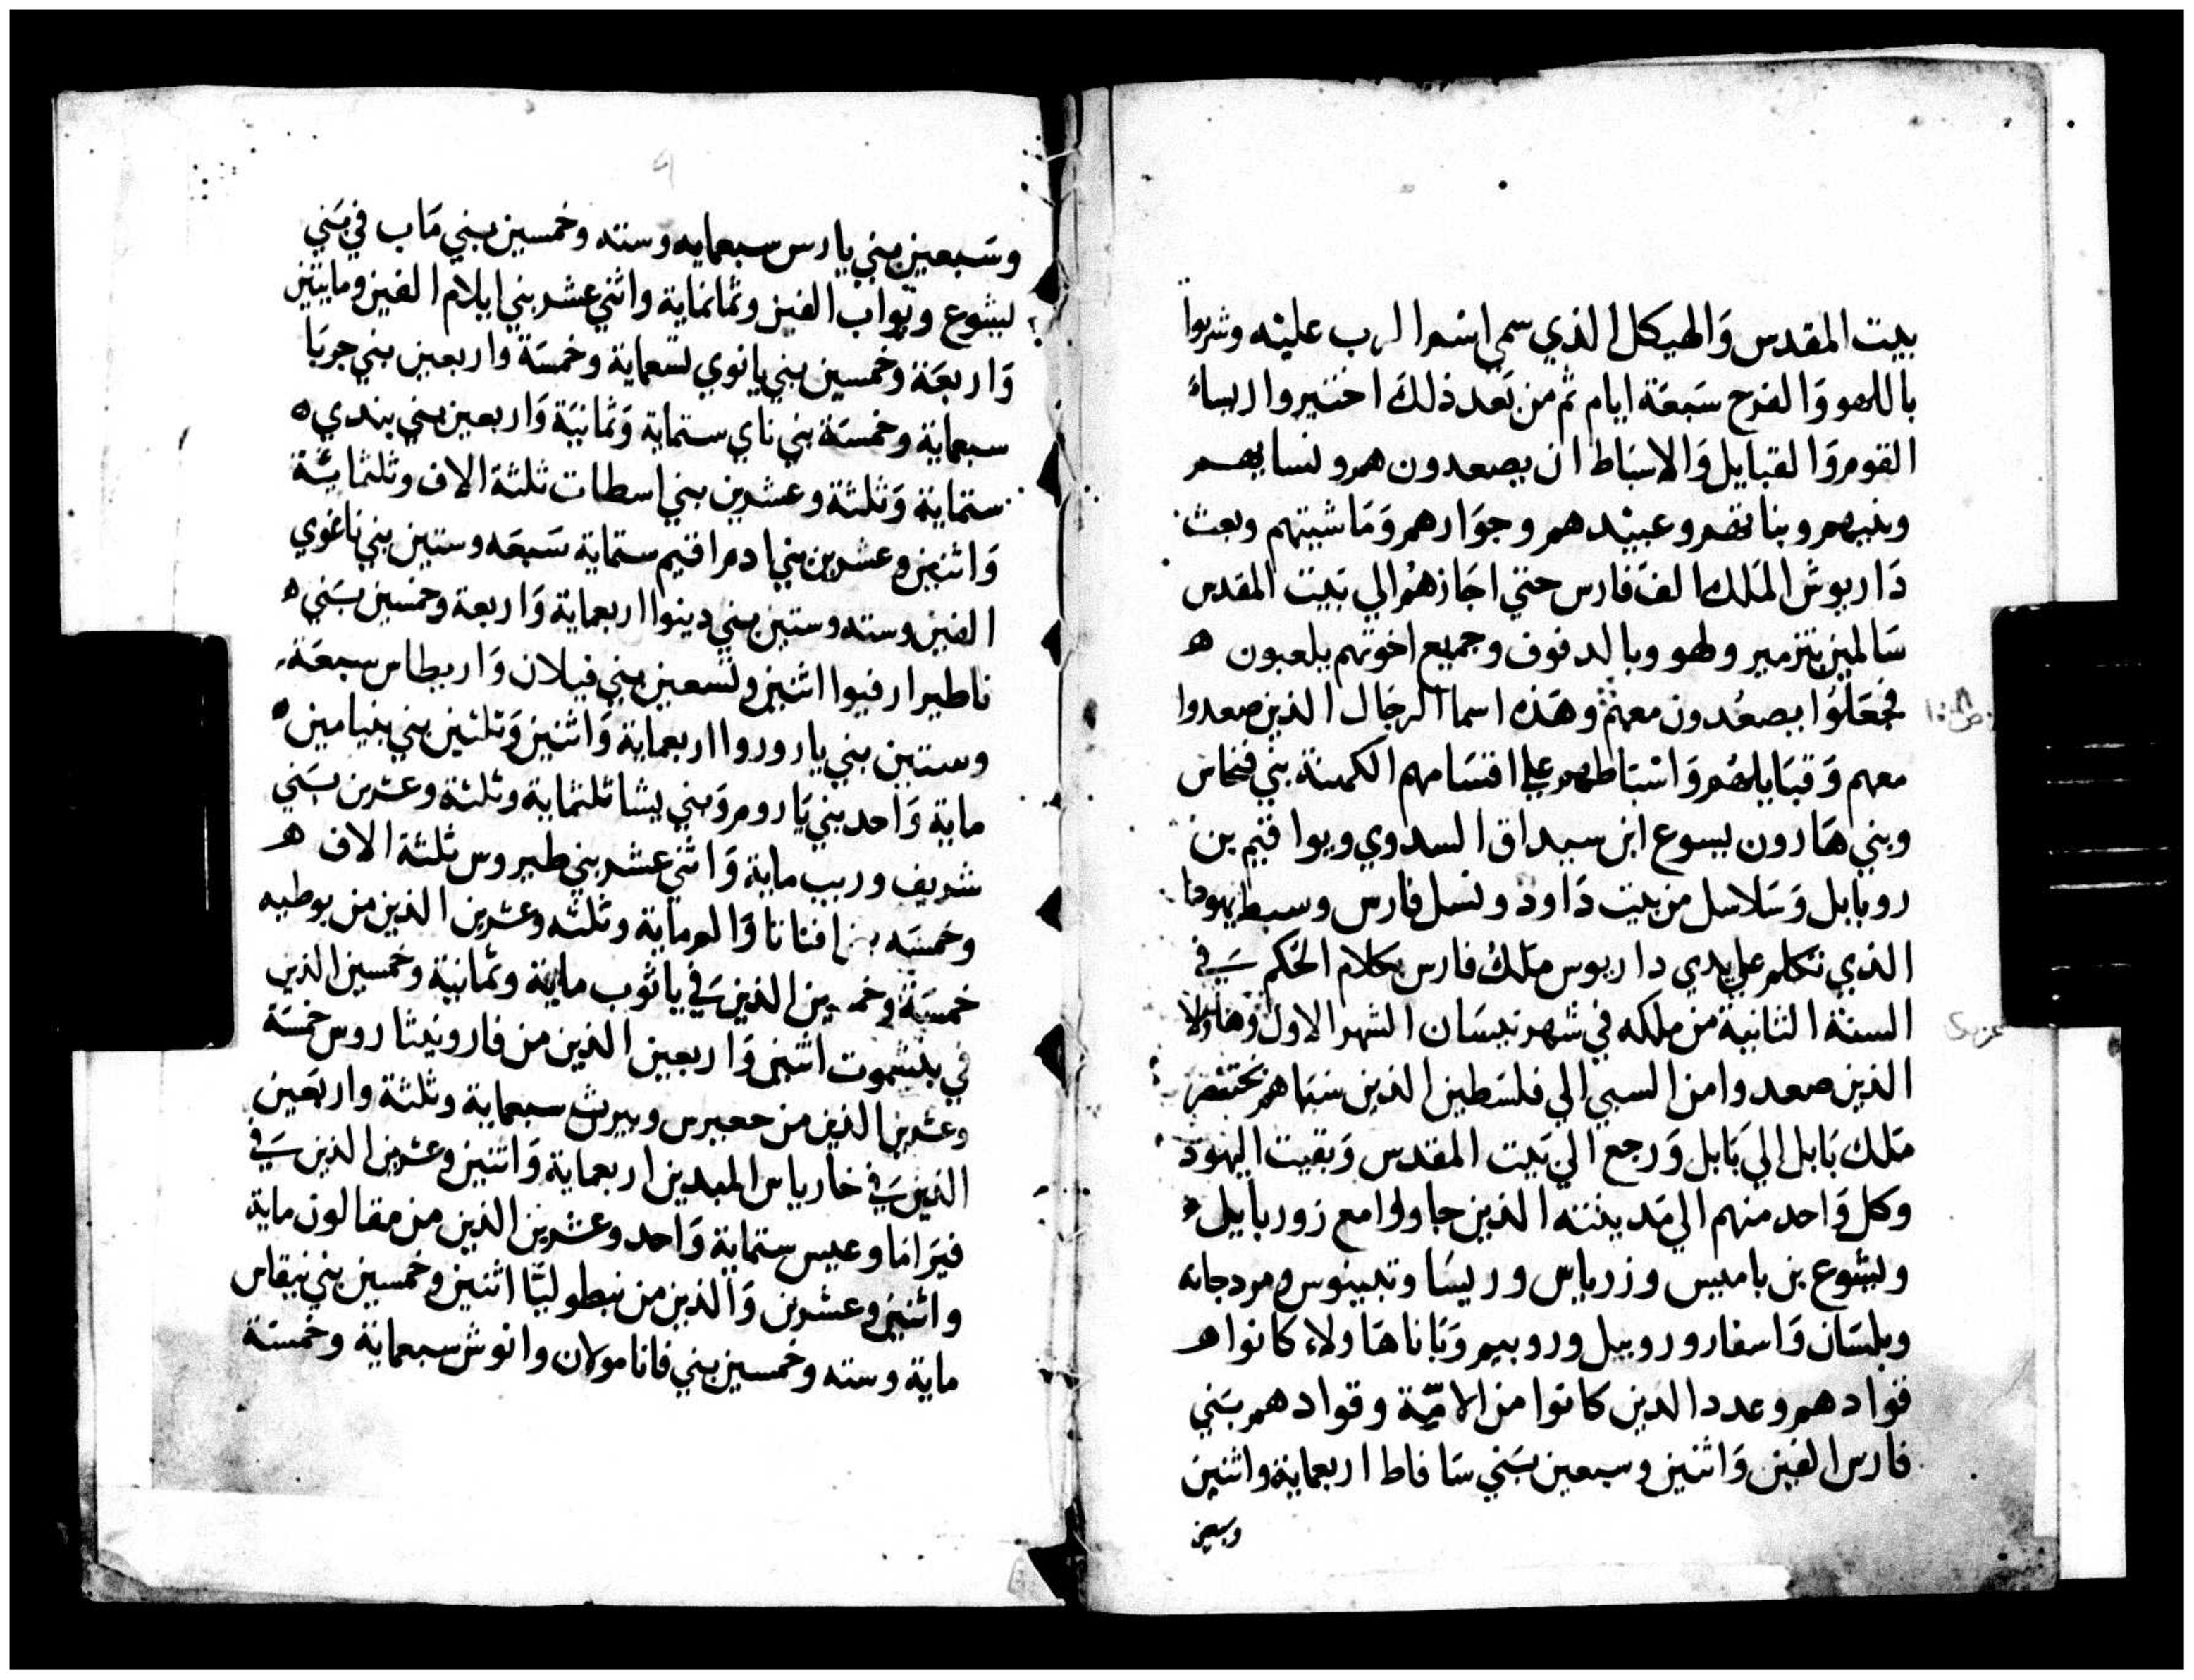 بيت المقدس وَالهيكل الذي سمي اسم الرب عليْه وشربوا
باللهو وَالفرح سَبعَة ايام ثم من بَعد ذلكَ اختيروا ريساء
القوم وَالقبايل وَالاسبَاط ان يصعدون هم ونسايهم
وبنيهم وبناتهم وعبيْدهم وجوَارهم وَمَاشيتهم وبعث
دَاريوش المَلك الف فارس حتي اجَازهُم الي بَيت المقدس
سَالمين بتزمير ولهو وبالدفوف وجميع اخوتهم يلعبون ه
فجَعَلوُا يصعُدون معهمْ وهَذه اسما الرجَال الذين صعدوا
معهم وَقبَايلهُم وَاسْبَاطهم علي اقسَامهم الكهنة بني فنحاس
وبني هَارون يسوع ابن سيداق السدوي ويواقيم بن
روبابل وَسَلاسل من بيت دَاود ونسل فارس وسبط يهودا
الذي تكلم علي يدي داريوس مَلكُ فارس بكلام الحَكم سَ في
السنة الثانية من ملكه في شهر نيسَان الشهر الاول وهاولا
الذين صعدوا من السبي الي فلسَطين الذين سَبَاهم بختنصر
مَلك بَابل الي بَابل وَرجع الي بَيت المقدس وَبقيت اليهود
وكل وَاحد منهم الي مَدينته الذين جاوا مع زوربابيل ه
ويشوع بن باميس وزرياس وريسَا وتيبينوس ومردجانه
وبلسَان وَاسفار وروبيل وروبيم وَبَانا هَاولاء كانوا ه
قوادهم وعدد الذين كانوا من الامّة وقوادهم بَني
فارس الفين وَاثنين وسبعين بَني سَافاط اربعماية واثنين
وسبعين
وسَبعين بني يارس سبعمايه وسته وخمسين بني مَاب في بَني
ليشوع ويواب الفين وثمانماية واثني عشر بني ايلام الفين ومايتين
وَاربعَة وخمسين بني يانوي تسعماية وخمسَة واربعين بني جربَا
سبعماية وخمسَة بني ناي ستماية وَثمانيَة وَاربعين بني بندي ه
ستماية وَثلثة وعشرين بني اسطات ثلثة الاف وثلثمائة
وَاثنين وعشرين بني ادمراقيم ستماية سَبعَه وستين بني ناغوي
الفين وسته وستين بني دينوا اربعماية وَاربعة وخمسين بَني ه
ناطيرارفيوا اثنين وتسعين بني فيلان وَاربطاس سبعَة
وستين بني ياروروا اربعماية وَاثنين وَثلثين بني بنيامين ه
ماية وَاحد بني يَارومروَبني يشا ثلثماية وثلثة وعشرين بَني
شريف وريب ماية وَاثني عشر بني طيروس ثلثة الاف ه
وخمسَه افنانا وَالوماية وثلثه وعشرين الذين من بوطيه
خمسَة الذين سَ في ياثوب ماية وثمانية وخمسين الذين
في بدشموت اثنين وَاربعين الذين من فارونيثاروس خمسَة
وعشرين الذين من حعبرس وبيرث سبعماية وثلثة واربَعين
الذين سَ في خارياس المبدين اربعماية وَاثنين وعشرين الذين سَ في
فيرَاما وعيس ستماية وَاحد وعشرين الذين من مقالون ماية
واثنين وعشرين وَالذين من نبطوليَّا اثنين وخمسين بني نيقاس
ماية وسته وخمسين بني فانا مولان وانوش سبعماية وخمسَة